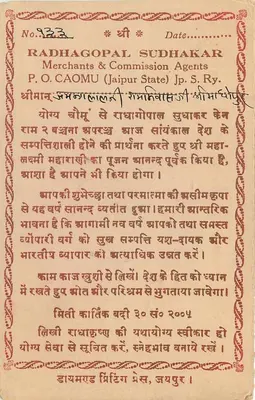 * श्री *
No. १३३ Date............
RADHAGOPAL SUDHAKAR
Merchants & Commission Agents
P. O. CAOMU (Jaipur State) Jp. S. Ry.
श्रीमान्
योग्य चौमू से राधागोपाल सुधाकर केन
राम २ बञ्चना अपरञ्च आज सांयंकाल देश के
सम्पत्तिशाली होने की प्रार्थना करते हुए श्री महा-
लक्ष्मी महाराणी का पूजन आनन्द पूर्वक किया है,
आशा है, आपने भी किया होगा।
आपकी शुभेच्छा तथा परमात्मा की असीम कृपा
से यह वर्ष सानन्द व्यतीत हुआ। हमारी आन्तरिक
भावना है कि आगामी नव वर्ष आपको तथा समस्त
व्यौपारी वर्ग को सुख सम्पत्ति यश-दायक और
भारतीय व्यापार को अत्याधिक उन्नत करें।
काम काज खुशी से लिखें। देश के हित को ध्यान
में रखते हुए श्रोत और परिश्रम से भुगताया जावेगा।
मिती कार्तिक बदी ३० सं० २००५
लिखी राधाकृष्ण की यथायोग्य स्वीकार हो
योग्य सेवा से सूचित करें, स्नेहभाव बनाये रखें।
डायमण्ड प्रिंटिंग प्रेस, जयपुर।